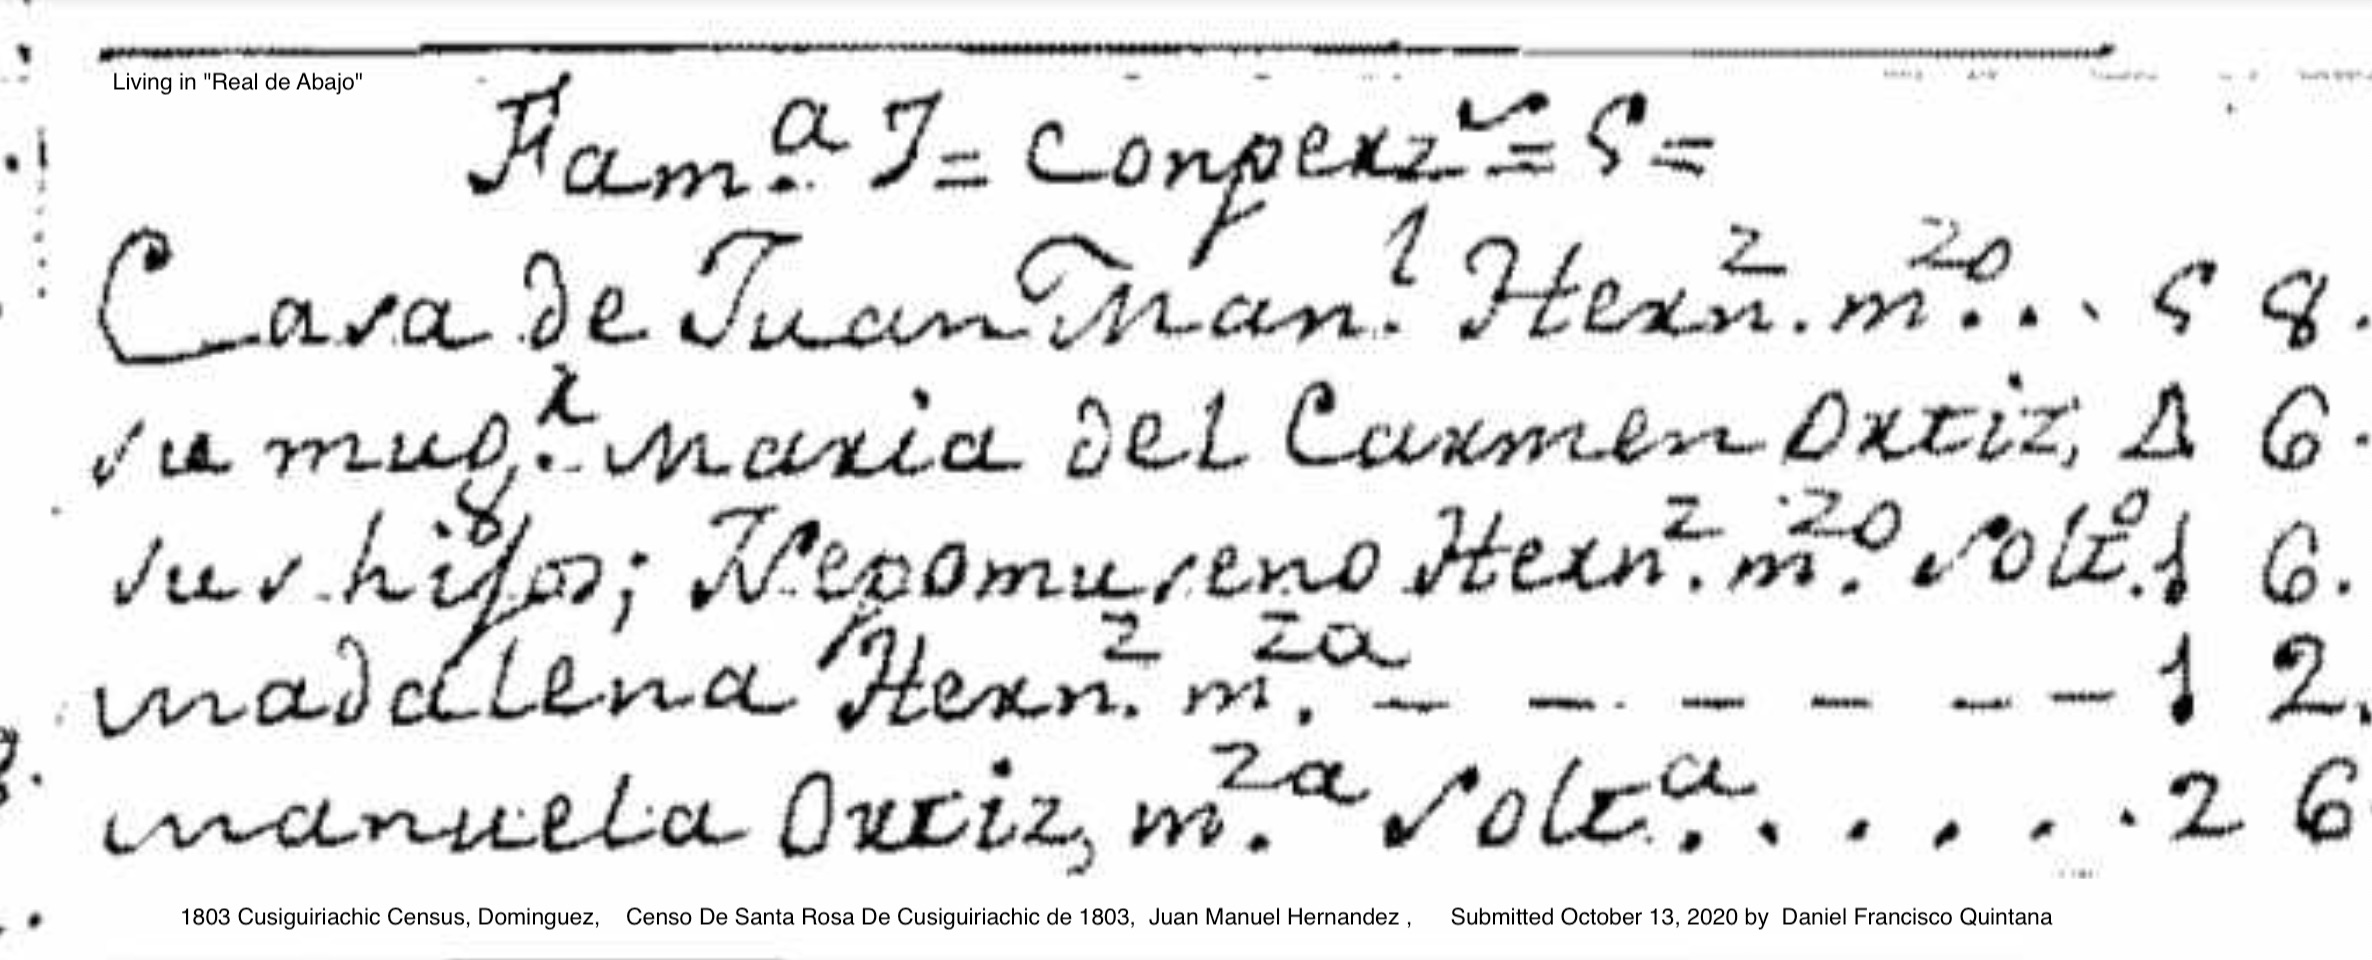 Living in "Real de Abajo"
Fam.ª J= Conperz.s = 5 =
Casa de Juan Man.l Hern.z m.zo . . . 5 8.
su mug.r Maria del Carmen Ortiz, Δ 6.
sus hijos; Nepomuseno Hern.z m.zo solt.o 1 6.
madalena Hern.z m.za – – – – – – 1 2.
manuela Ortiz, m.za solt.a . . . . . . 2 6
1803 Cusiguiriachic Census, Dominguez, Censo De Santa Rosa De Cusiguiriachic de 1803, Juan Manuel Hernandez , Submitted October 13, 2020 by Daniel Francisco Quintana